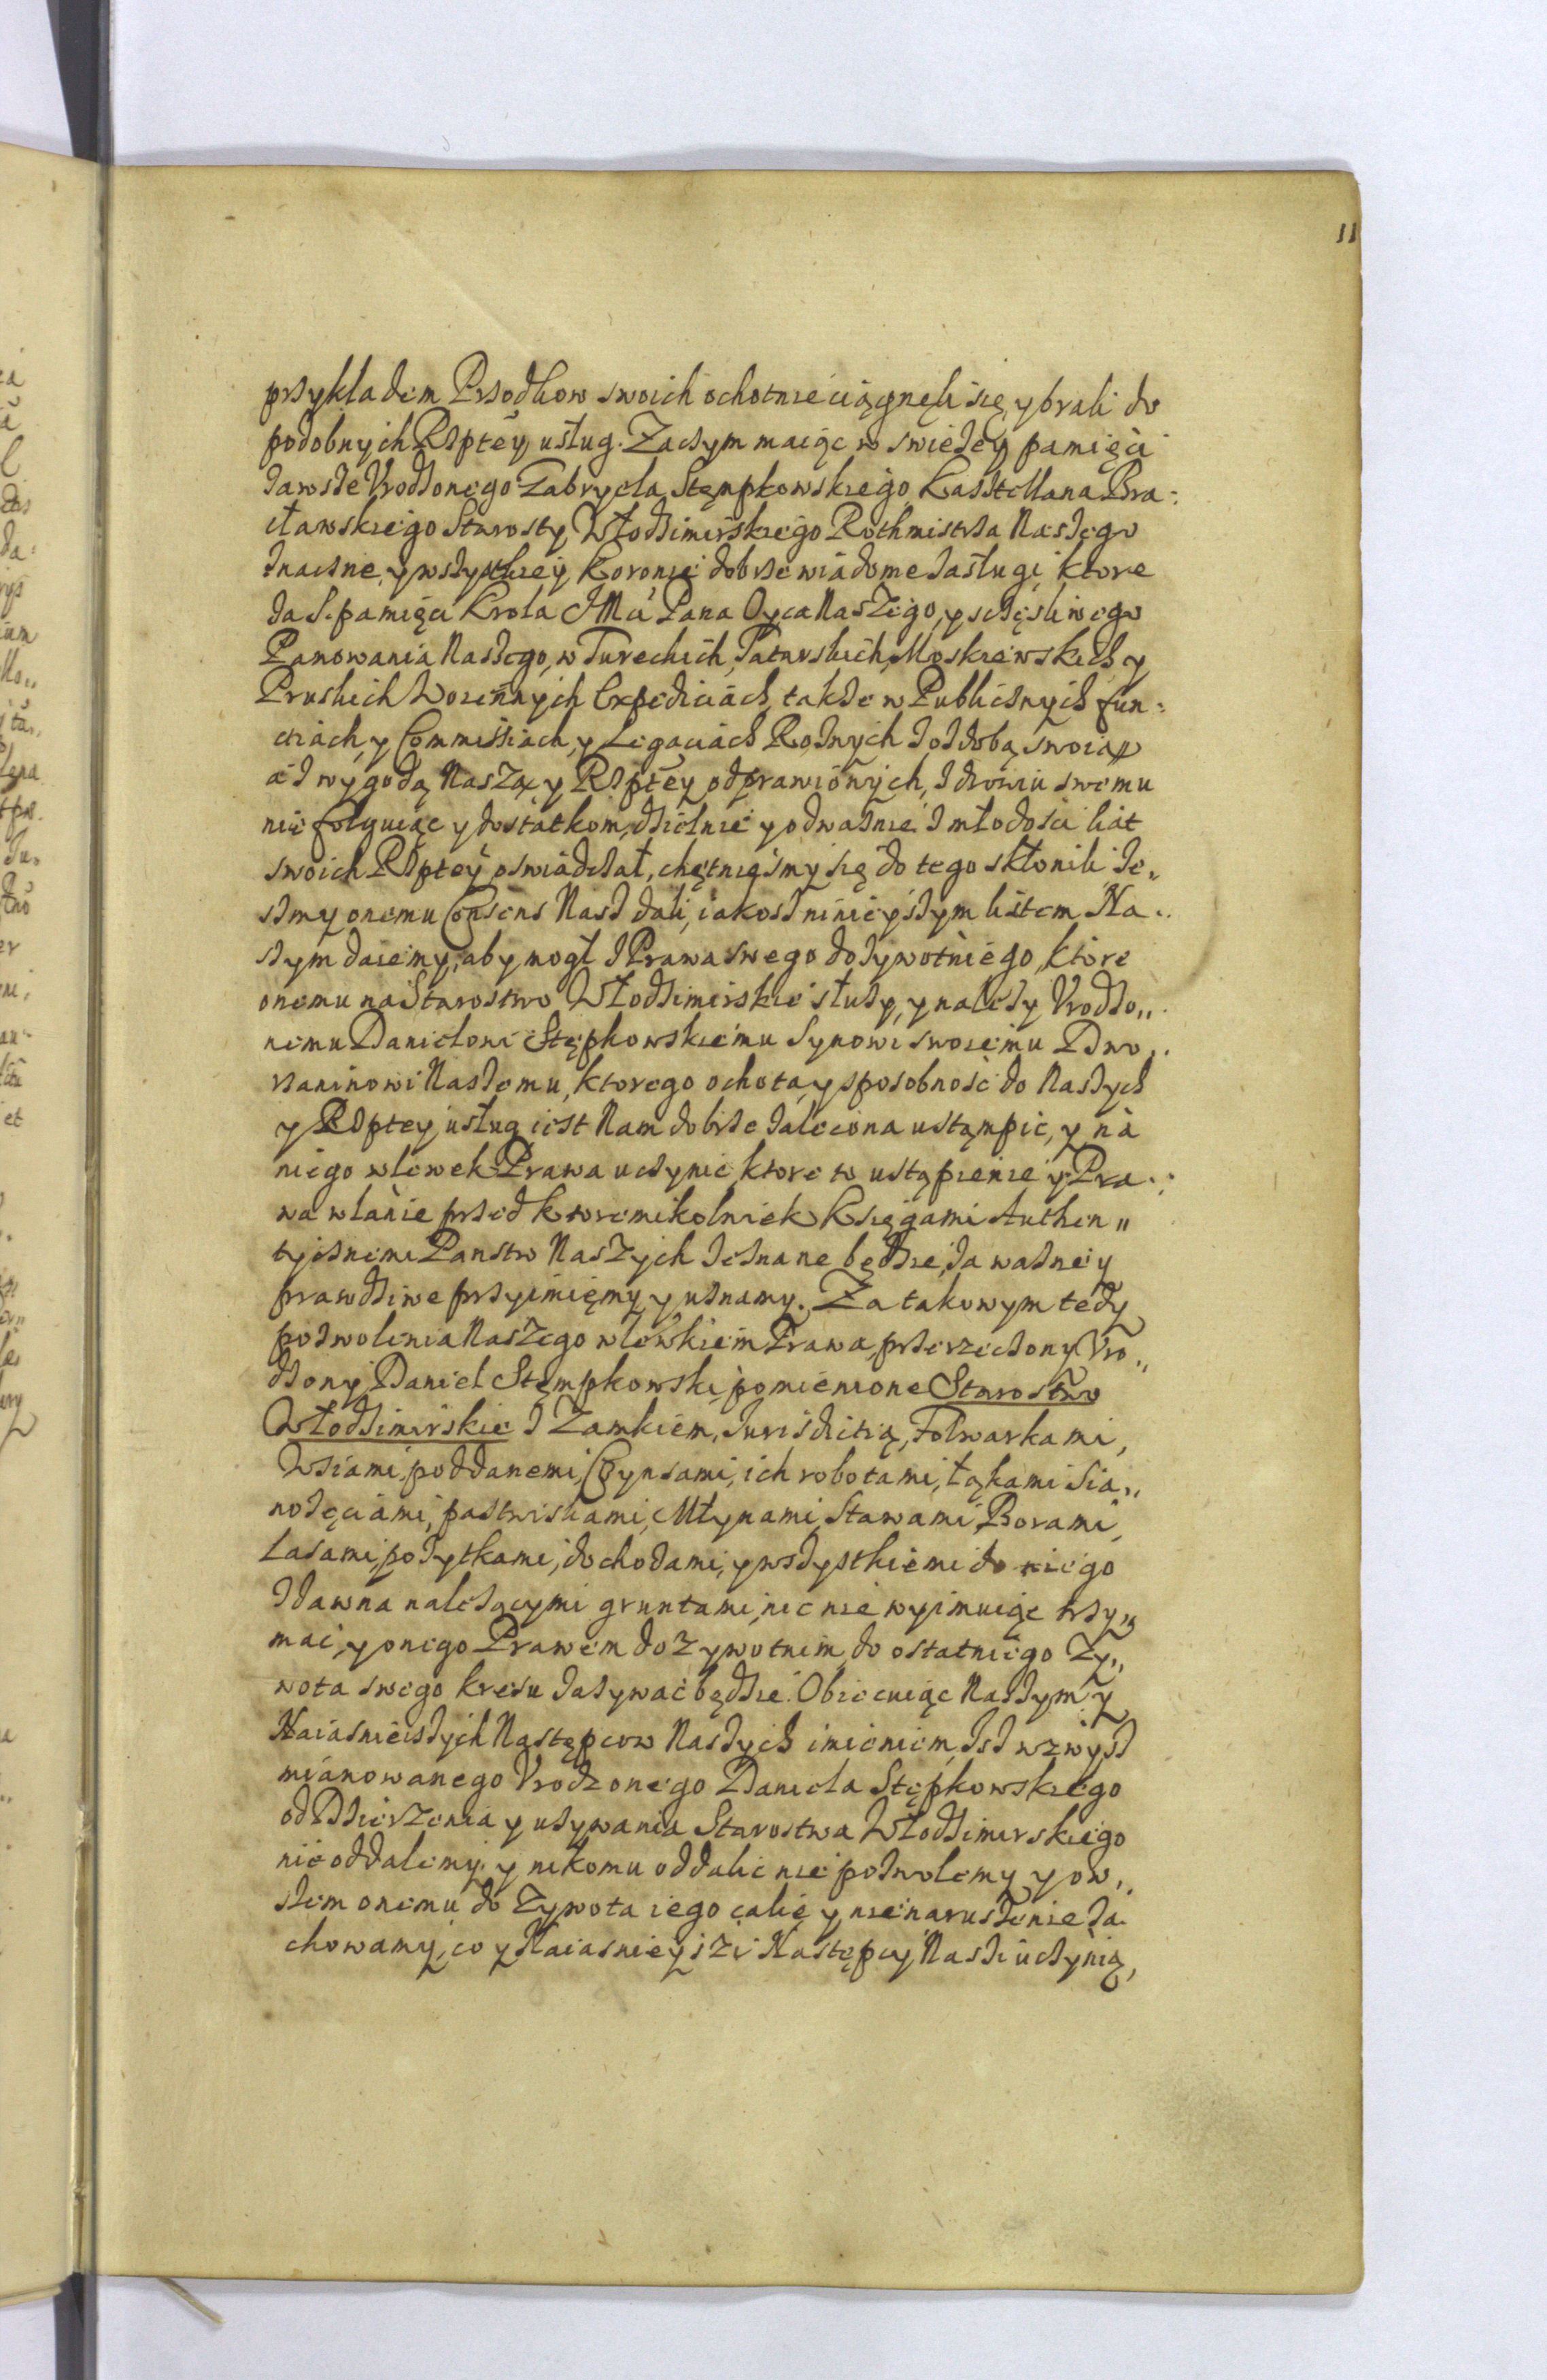 11
przykładem Przodkow swoich ochotnie ciągnęli się, y brali do
podobnych Rzptey usług. Zaczym maiąc w swieżey pamięci
zawsze Vrodzonego Gabryela Stęmpkowskiego Kasztellana Bra:
cławskiego Starosty Włodzimirskiego Rothmistrza Naszego
znaczne, y wszystkiey Koronie dobrze wiadome zasługi, ktore
za S. pamięci Krola JMci Pana Oyca Naszego, y szczęsliwego
Panowania Naszego, w Tureckich, Tatarskich, Moskiewskich y
Pruskich Woiennych Expediciach, także w Publicznych fun:
ctiach, y Commissiach, y Legaciach Rożnych z ozdobą swoią
a z wygodą Naszą y Rzptey odprawionych, zdrowiu swemu
nie folguiąc y dostatkom, dzielnie y odważnie z młodości liat
swoich Rzptey oswiadczał, chętnieśmy się do tego skłonili że„
szmy onemu Consens Nasz dali, iakosz ninieyszym listem Na„
szym daiemy, aby mogł z Prawa swego dożywotniego, ktore
onemu na Starostwo Włodzimirskie służy, y należy Vrodzo„
nemu Danielowi Stępkowskiemu Synowi swoiemu Dwo„
rzaninowi Naszemu, ktorego ochota, y sposobność do Naszych
y Rzptey usług iest Nam dobrze zalecona ustąmpic, y na
niego wlewek Prawa uczynic, ktore to ustąpienie y Pra„
wa wlanie przed ktoremikolwiek Księgami Authen„
tycznemi Panstw Naszych zeznane będzie, za ważne y
prawdziwe przyimięmy y uznamy. Za takowym tedy
pozwolenia Naszego wlewkiem Prawa, przerzeczony Vro„
dzony Daniel Stęmpkowski, pomienione Starostwo
Włodzimirskie z Zamkiem, Jurisdictią, Folwarkami,
Wsiami, poddanemi, Czynszami, ich robotami, łąkami Sia„
nożęciami, pastwiskami, Młynami, Stawami, Borami,
Lasami, pożytkami, dochodami, y wszystkiemi do niego
zdawna należącymi gruntami, nic nie wyimuiąc trzy„
mac, y onego Prawem dożywotnim, do ostatniego Zy„
wota swego kresu zażywać będzie. Obiecuiąc Naszym y
Naiasnieiszych Następcow Naszych imieniem, Isz wzwysz
mianowanego Vrodzonego Daniela Stępkowskiego
od Dzierzenia y używania Starostwa Włodzimirskiego
nie oddalemy, y nikomu oddalic nie pozwolemy y ow„
szem onemu do Zywota iego calie y nienaruszenie za„
chowamy, co y Naiasnieyszi Następcy Naszi uczynią,